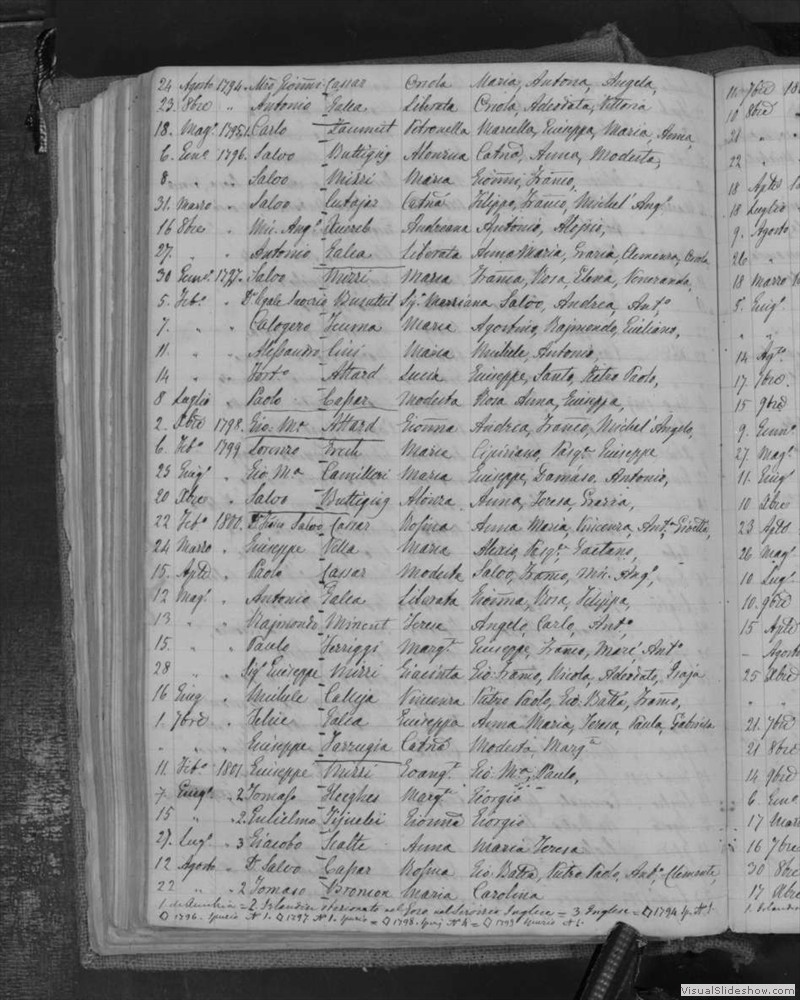 24 Agosto 1794 Mro Gionni Cassar Onola Maria, Antona, Angela,
23. 8bre " Antonio Galea Liberata Onola, Adeodata, Vittoria
18. Mag.o 1795.1. Carlo Petronella Marcella, Giuseppa, Maria, Anna
6. Genn.o 1796. Salvo Buttigieg Alonzia Catñã, Anna, Modesta,
8. " " Salvo Mizzi Maria Gionni, Franco,
31. Marzo " Salvo Cutajar Catñã Filippo, Franco, Michel' Ang.o
16 8bre " Mic. Ang.o Xuereb Andreana Antonio, Aloisio,
27. " " Antonio Galea Liberata Anna Maria, Grazia, Clemenza, Onola
30 Genn.o 1797. Salvo Mizzi Maria Franca, Rosa, Elena, Veneranda,
5. Feb.o " Saverio Busuttil Sg.a Marriana Salvo, Andrea, Ant.o
7. " " Calogero Maria Agostino, Rajmondo, Emiliano,
11. " " Alessandro Cini Maria Michele, Antonio,
14 " " Attard Lucia Giuseppe, Santo, Pietro Paolo,
8 Luglio " Paolo Caspar Modesta Rosa Anna, Giuseppa,
2. Xbre 1798. Gio: M.a Attard Gionna Andrea, Franco, Michel' Angelo,
6. Feb.o 1799 Lorenzo Maria Cipriano, Pasq.e Giuseppe
23 Giug.o " Gio M.a Camilleri Maria Giuseppe, Damaso, Antonio,
20 Xbre " Salvo Buttigieg Alonza Anna, Teresa, Grazia,
22 Feb.o 1800. Salvo Cassar Rosina Anna Maria, Vincenza, Ant.a
24 Marzo " Giuseppe Vella Maria Alesio, Pasq.e Gaetano,
15. Aple " Paolo Cassar Modesta Salvo, Franco, Mic. Ang.o,
12 Mag.o " Antonio Galea Liberata Gionna, Rosa, Filippa,
13 " " Rajmondo Teresa Angelo, Carlo, Ant.o
15. " " Paulo Ferriggi Marg.a Giuseppe, Franco, Mari' Ant.o
28 " " Sig.r Giuseppe Mizzi Giacinta Gio: Franco, Nicola, Adeodato,
16 Giug " Michele Calleja Vincenza Pietro Paolo, Gio: Batta, Franco,
1. 7bre " Felice Galea Giuseppa Anna Maria, Teresa, Paula, Gabriela
" " " Giuseppe Farrugia Catñã Modesta Marg.a
11. Feb.o 1801. Giuseppe Mizzi Evang.a Gio M.a, Paulo,
7. Giug.o " 2 Tomaso Heeghes Marg.a Giorgio
15 " " 2. Gulielmo Gionna Giorgio
27. Lug.o " 3 Giacobo Scatte Anna Maria Teresa
12 Agosto " D. Salvo Caspar Rosina Gio: Batta, Pietro Paolo, And.a Clemente,
22 " " 2 Tomaso Maria Carolina
1. = 2. Irlandesi nel Servizio Inglese = 3. Inglese = 1794 N. 1.
1796. N. 1. 1797 N. 1. = 1798. N. 4. = 1799 N. 1.
11. 7bre 18
10 8bre
21 "
22 "
18 Aple
18 Luglio
9. Agosto
26 "
18 Marzo
5. Giug.o
" "
14 Ag.o
17. 7bre
15 9bre
9. Genn.o
27 Mag.o
11. Giug.o
10 Xbre
23 Aple
26 Mag.o
10 Lug.o
10. 9bre
15 Aple
- Agosto
25 Xbre
" "
21. 7bre
21 8bre
14 9bre
6 Gen.o
17 Marz
16 7bre
30 8bre
17 Xbre
VisualSlideshow.com